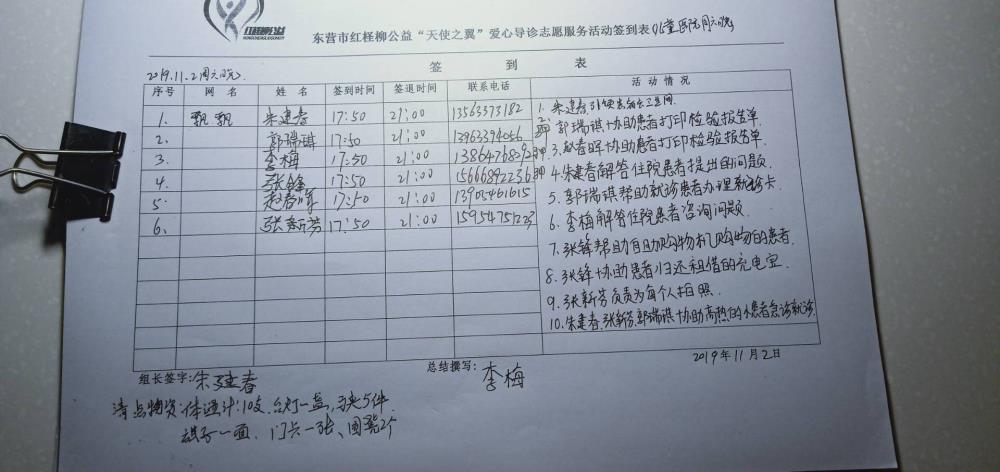 红柽柳公益
东营市红柽柳公益“天使之翼”爱心导诊志愿服务活动签到表
签 到 表
2019.11.2周六晚
序号 网 名 姓 名 签到时间 签退时间 联系电话 活动情况
1. 飘飘 朱建春 17:50 21:00 13563373182
2. 郭瑞琪 17:50 21:00 13963394056
3. 李梅 17:50 21:00 13864768092
4. 张锋 17:50 21:00 15666892236
5. 赵春晖 17:50 21:00 13905461615
6. 张新芳 17:50 21:00
1. 朱建春引领患者去卫生间.
2. 郭瑞琪协助患者打印检验报告单
3. 赵春晖协助患者打印检验报告单.
4. 朱春解答住院患者提出的问题
5. 郭瑞琪帮助就诊患者办理就诊卡
6. 李梅解答住院患者咨询问题.
7. 张锋帮助自助购物机购物的患者.
8. 张锋协助患者归还租借的充电宝.
9. 张新芳负责为每个人拍照.
10. 朱建春.张新芳.郭瑞琪协助高热的小患者急诊就诊.
2019年11月2日
组长签字: 朱建春
总结撰写: 李梅
清点物资:体温计:10支. 台灯一盏, 马夹5件
旗子一面. 门六一张、圆凳2个